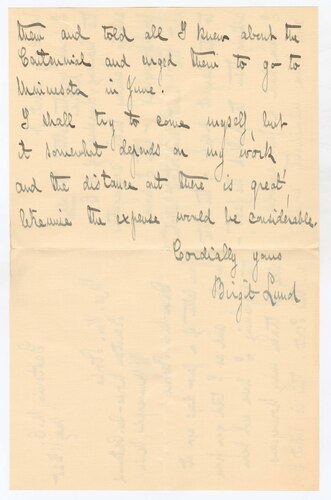 them and told all I knew about the
Centennial and urged them to go to
Minnesota in June.
I shall try to come myself but
it somewhat depends on my work
and the distance out there is great,
likewise the expense would be considerable.
Cordially yours
Birgit Lund